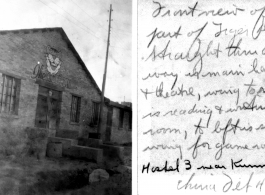 Front view of
part of Tiger
straight thru d
way is main
& theatre, wing to
is reading &
room, to left is
wing for game ro
Hostel 3 near Kunm
China Feb